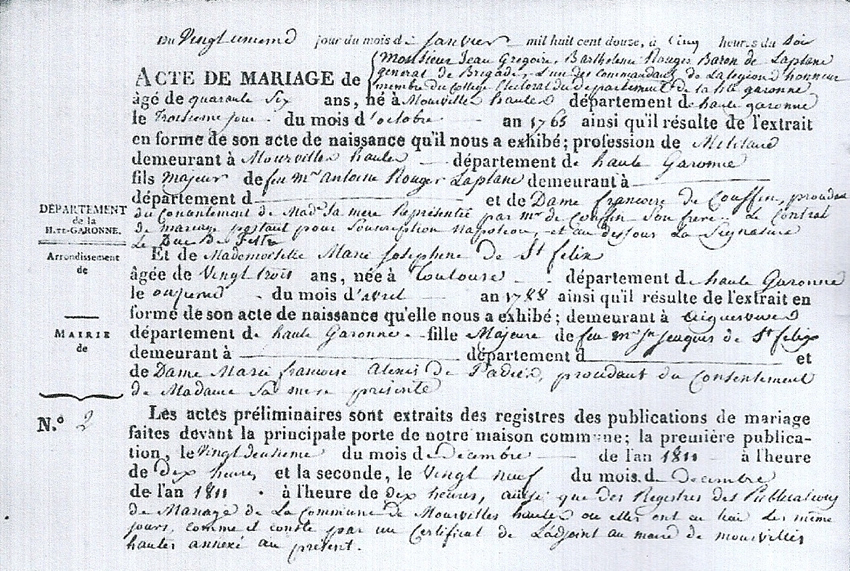 Du Vingt unieme jour du mois de Janvier mil huit cent douze, à Cinq heures du Soir
ACTE DE MARIAGE de Monsieur Jean Gregoire, Barthelemi Rouger Baron de Laplane
general de Brigade, L'un des Commandans de La legion d'honneur
membre du College Electoral du departement de la hte garonne
âgé de quarante Six ans, né à Mourvilles hautes département de haute garonne
le troisieme jour du mois d'octobre an 1765 ainsi qu'il résulte de l'extrait
en forme de son acte de naissance qu'il nous a exhibé; profession de Militaire
demeurant à Mourvilles hautes département de haute Garonne
fils majeur de feu Mr Antoine Rouger Laplane demeurant à
département d et de Dame francoise de Couffin, procedant
du Consentement de Made Sa mere Représentée par mr de Couffin Son frere. Le Contrat
de mariage portant pour Souscription Napoleon, et au dessous La Signature
Le Duc de
Et de Mademoiselle Marie Josephine de St felix
âgée de Vingt trois ans, née à Toulouse département de haute Garonne
le onzieme du mois d'avril an 1788 ainsi qu'il résulte de l'extrait en
forme de son acte de naissance qu'elle nous a exhibé; demeurant à
département de haute Garonne fille Majeure de feu mr Jn Jacques de St felix
demeurant à département d et
de Dame Marie francoise Alexis de procedant du Consentement
de Madame Sa mere présente
DÉPARTEMENT
de la
H.TE-GARONNE.
Arrondissement
de
MAIRIE
de
N.º 2
Les actes préliminaires sont extraits des registres des publications de mariage
faites devant la principale porte de notre maison commune; la première publica-
tion, le Vingt deuxieme du mois de Decembre de l'an 1811 à l'heure
de dix heures et la seconde, le Vingt neuf du mois de Decembre
de l'an 1811 à l'heure de dix heures, ainsi que des Registres des Publications
de Mariage de La Commune de Mourvilles hautes ou elles ont eu lieu Les même
jours, comme il conste par un Certificat de L'adjoint au maire de mourvilles
hautes annexé au présent.